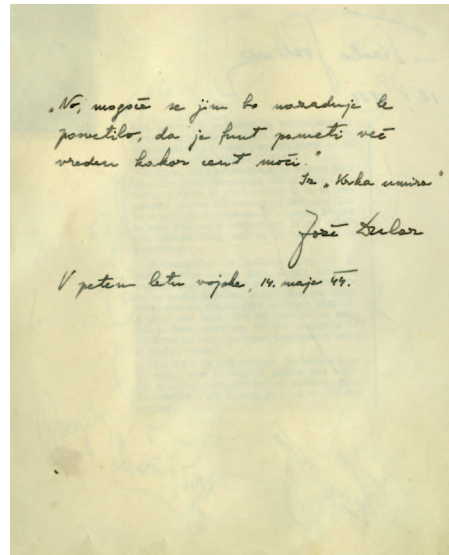 „No, mogoče se jim bo nazadnje le
posvetilo, da je funt pameti več
vreden kakor cent moči.“
Iz „Krka umira“
Jože Dular
V petem letu vojske, 14. maja 44.